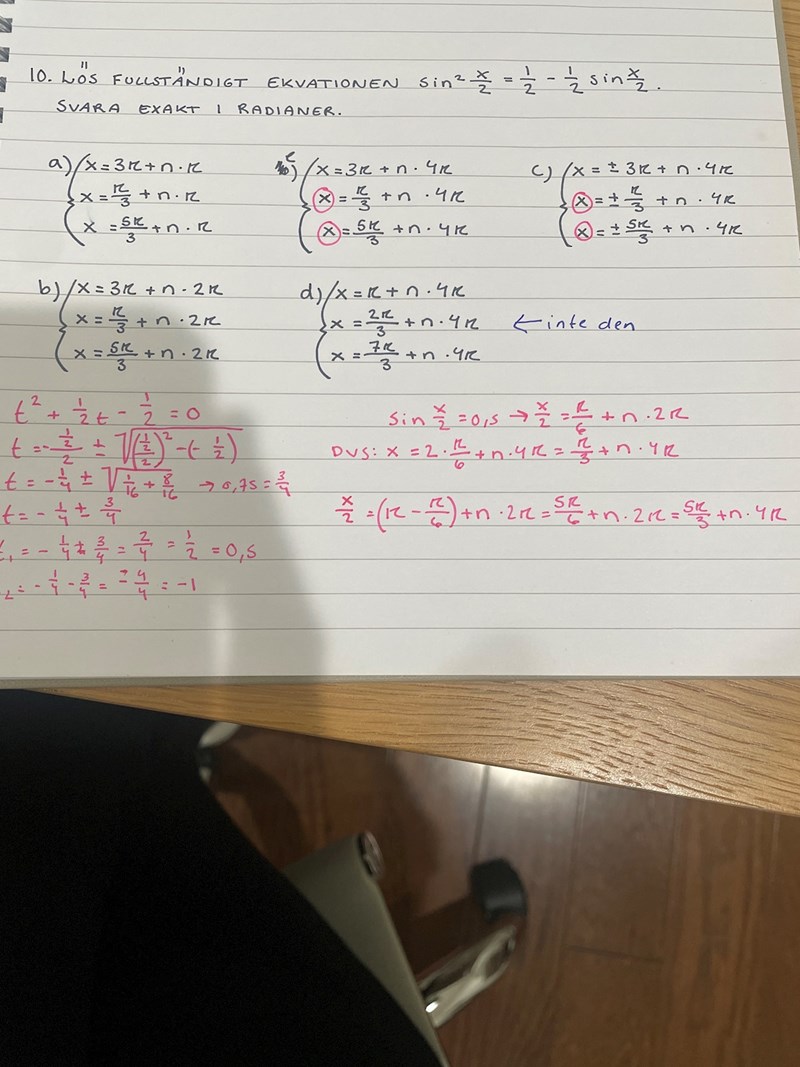 10. LÖS FULLSTÄNDIGT EKVATIONEN sin² x/2 = 1/2 - 1/2 sin x/2.
SVARA EXAKT I RADIANER.
a) { x = 3π + n · π
x = π/3 + n · π
x = 5π/3 + n · π
e) { x = 3π + n · 4π
x = π/3 + n · 4π
x = 5π/3 + n · 4π
c) { x = ± 3π + n · 4π
x = ± π/3 + n · 4π
x = ± 5π/3 + n · 4π
b) { x = 3π + n · 2π
x = π/3 + n · 2π
x = 5π/3 + n · 2π
d) { x = π + n · 4π
x = 2π/3 + n · 4π ← inte den
x = 7π/3 + n · 4π
t² + 1/2 t - 1/2 = 0
t = - (1/2)/2 ± √(((1/2)/2)² - (- 1/2))
t = - 1/4 ± √(1/16 + 8/16) → 0,75 = 3/4
t = - 1/4 ± 3/4
t₁ = - 1/4 + 3/4 = 2/4 = 1/2 = 0,5
₂ = - 1/4 - 3/4 = - 4/4 = -1
sin x/2 = 0,5 → x/2 = π/6 + n · 2π
DVS: x = 2 · π/6 + n · 4π = π/3 + n · 4π
x/2 = (π - π/6) + n · 2π = 5π/6 + n · 2π = 5π/3 + n · 4π